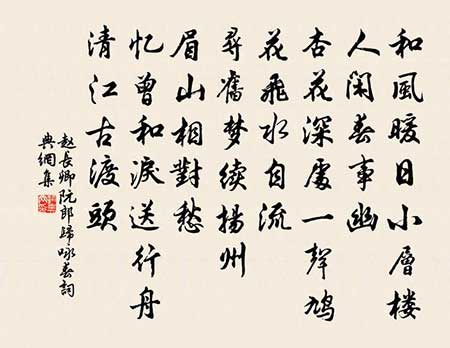 和風暖日小層楼
人闲春事幽
杏花深處一聲鳩
花飛水自流
尋舊梦续揚州
眉山相對愁
忆曾和淚送行舟
清江古渡頭
赵長卿阮郎歸咏春詞
典網集